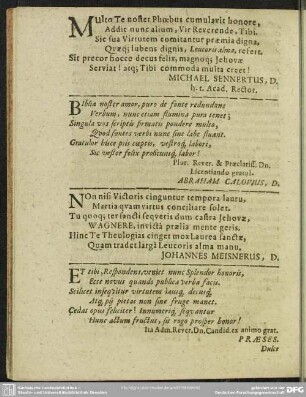 Multo Te noster Phœbus cumulavit honore,
Addit nunc alium, Vir Reverende, Tibi.
Sic sua Virtutem comitantur præmia digna,
Quæq; lubens dignis, Leucoris alma, refert.
Sit precor hocce decus felix, magnoq; Jehovæ
Serviat! atq; Tibi commoda multa creet!
MICHAEL SENNERTUS, D.
h. t. Acad. Rector.
Biblia noster amor, puro de fonte redundans
Verbum, nunc etiam flumina pura tenet;
Singula vos scriptis firmatis pondere multo,
Quod funera verbi nunc sine labe fluant.
Gratulor hisce piis cœptis, vestroq; labori,
Sic vester felix proficuusq; labor!
Plur. Rever. & Præclarisſ. Dn.
Licentiando gratul.
ABRAHAM CALOVIUS, D.
NOn nisi Victoris cinguntur tempora lauru,
Martia quam virtus conciliare solet.
Tu quoq; ter sancti sequeris dum castra Jehovæ,
WAGNERE, invicta prælia mente geris.
Hinc Te Theologias cinget mox Laurea sanctæ,
Quam tradet larga Leucoris alma manu.
JOHANNES MEISNERUS, D.
ET tibi, Respondens, veniet nunc Splendor honoris,
Este novus quando publica verba facis.
Scilicet insequitur virtutem
Atq; pietas non sine fruge manet.
Cedat opus feliciter! Innumeriq; sequantur
Hunc actum fructus, sit rogo prosper honor!
Ita Adm. Rever. Dn. Candid. ex animo grat.
PRÆSES.